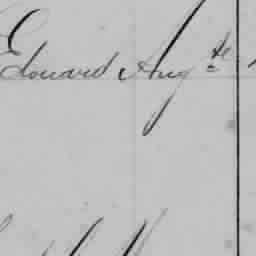 Edouard Aug.te